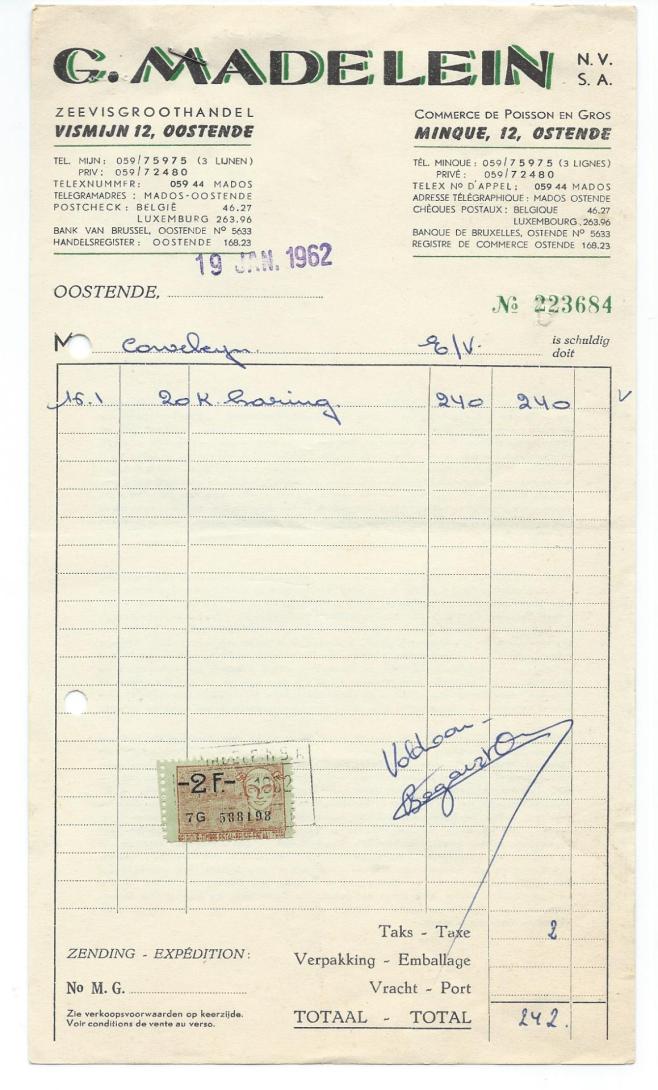 G. MADELEIN N.V.
S.A.
ZEEVISGROOTHANDEL
VISMIJN 12, OOSTENDE
TEL. MIJN: 059/75975 (3 LIJNEN)
PRIV: 059/72480
TELEXNUMMER: 059 44 MADOS
TELEGRAMADRES: MADOS-OOSTENDE
POSTCHECK: BELGIË 46.27
LUXEMBURG 263.96
BANK VAN BRUSSEL, OOSTENDE No 5633
HANDELSREGISTER: OOSTENDE 168.23
COMMERCE DE POISSON EN GROS
MINQUE, 12, OSTENDE
TÉL. MINQUE: 059/75975 (3 LIGNES)
PRIVÉ: 059/72480
TELEX No D'APPEL; 059 44 MADOS
ADRESSE TÉLÉGRAPHIQUE: MADOS OSTENDE
CHÈQUES POSTAUX: BELGIQUE 46.27
LUXEMBOURG. 263.96
BANQUE DE BRUXELLES, OSTENDE No 5633
REGISTRE DE COMMERCE OSTENDE 168.23
19 JAN. 1962
OOSTENDE,
No 223684
M E/V. is schuldig
doit
16.1 20 K haring 240 240 V
Voldaan
-2F.-
7G 588198
Taks - Taxe 2
ZENDING - EXPÉDITION:
Verpakking - Emballage
No M. G.
Vracht - Port
Zie verkoopsvoorwaarden op keerzijde.
Voir conditions de vente au verso.
TOTAAL - TOTAL 242.